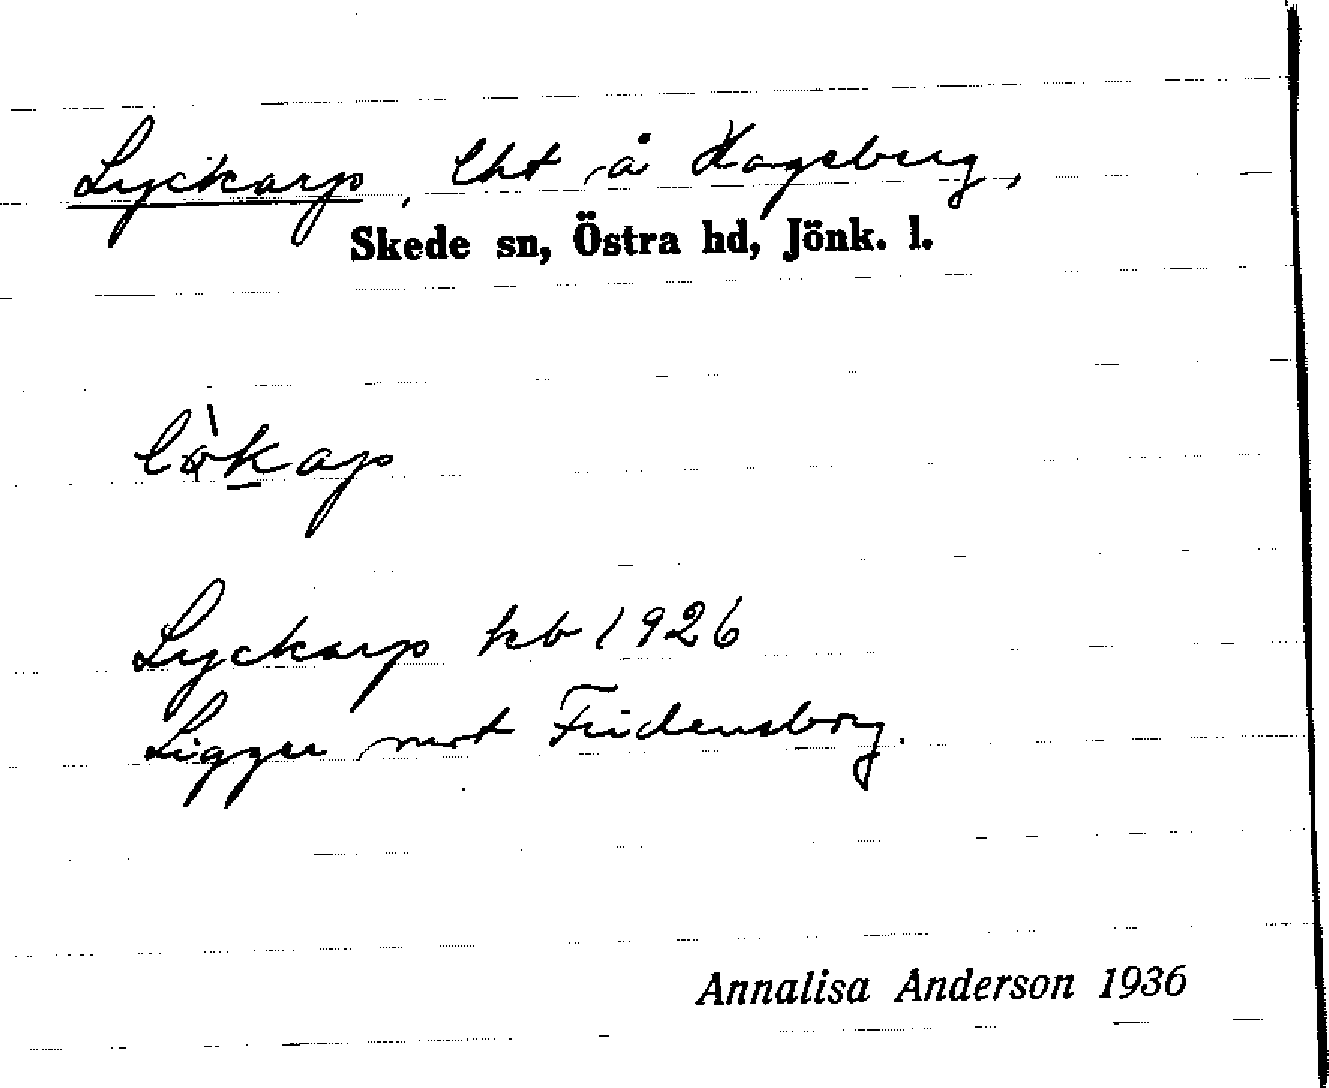 Lyckarp, lht å Hageberg,
Skede sn, Östra hd, Jönk. l.
Lyckarp kb 1926
Ligger mot Fridensborg.
Annalisa Anderson 1936